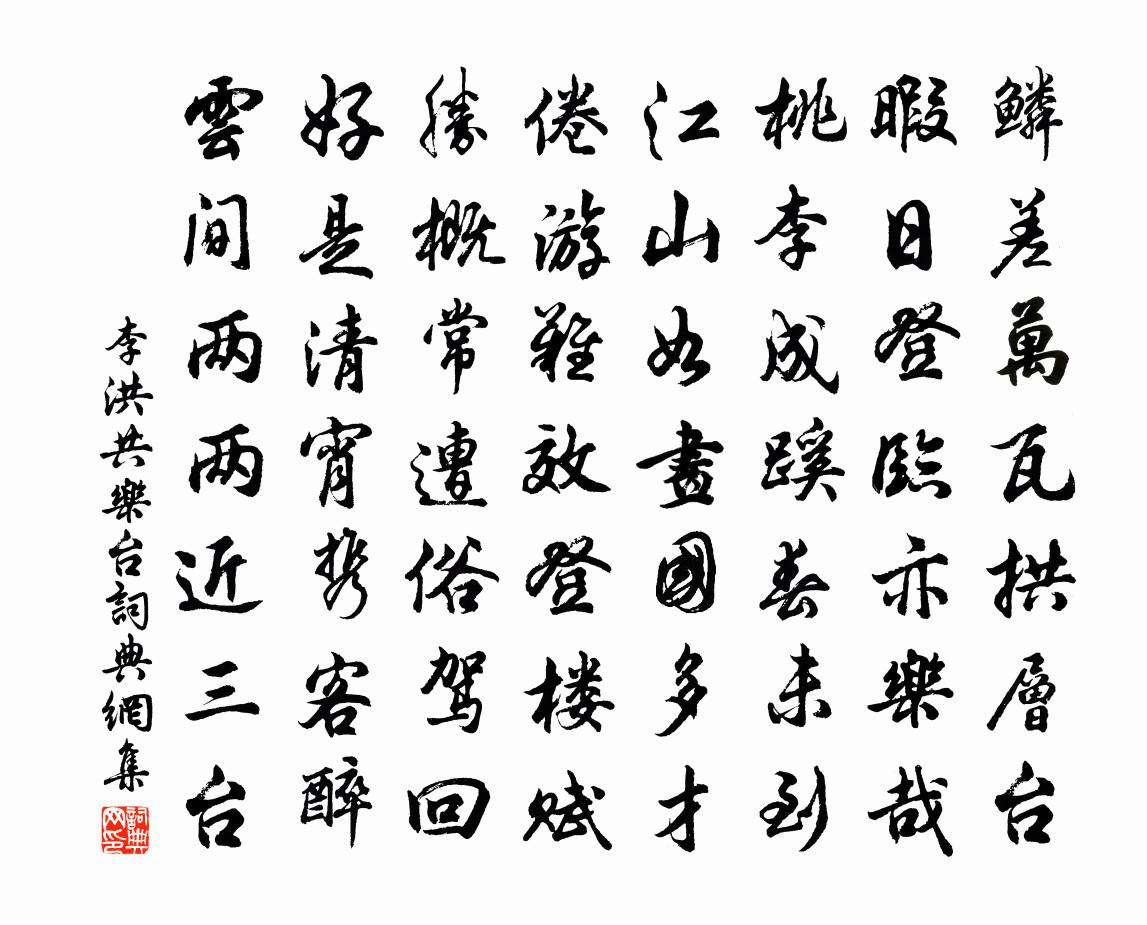 鳞差萬瓦拱層台
暇日登臨亦樂哉
桃李成蹊春未到
江山如畫國多才
倦游難效登楼赋
勝概常遭俗驾回
好是清宵携客醉
雲间两两近三台
李洪共樂台詞典網集
詞典网印